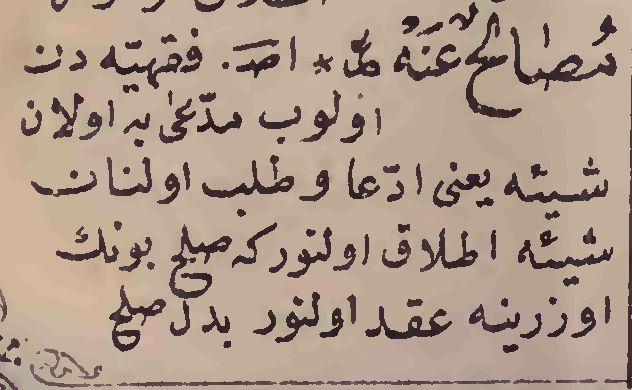 مُصَالَحٌ عَنْهُ ص * اصـ. فقهيّه دن
اولوب مدّعىٰ به اولان
شيئه يعنى ادّعا و طلب اولنان
شيئه اطلاق اولنور كه صلح بونك
اوزرينه عقد اولنور بدل صلح